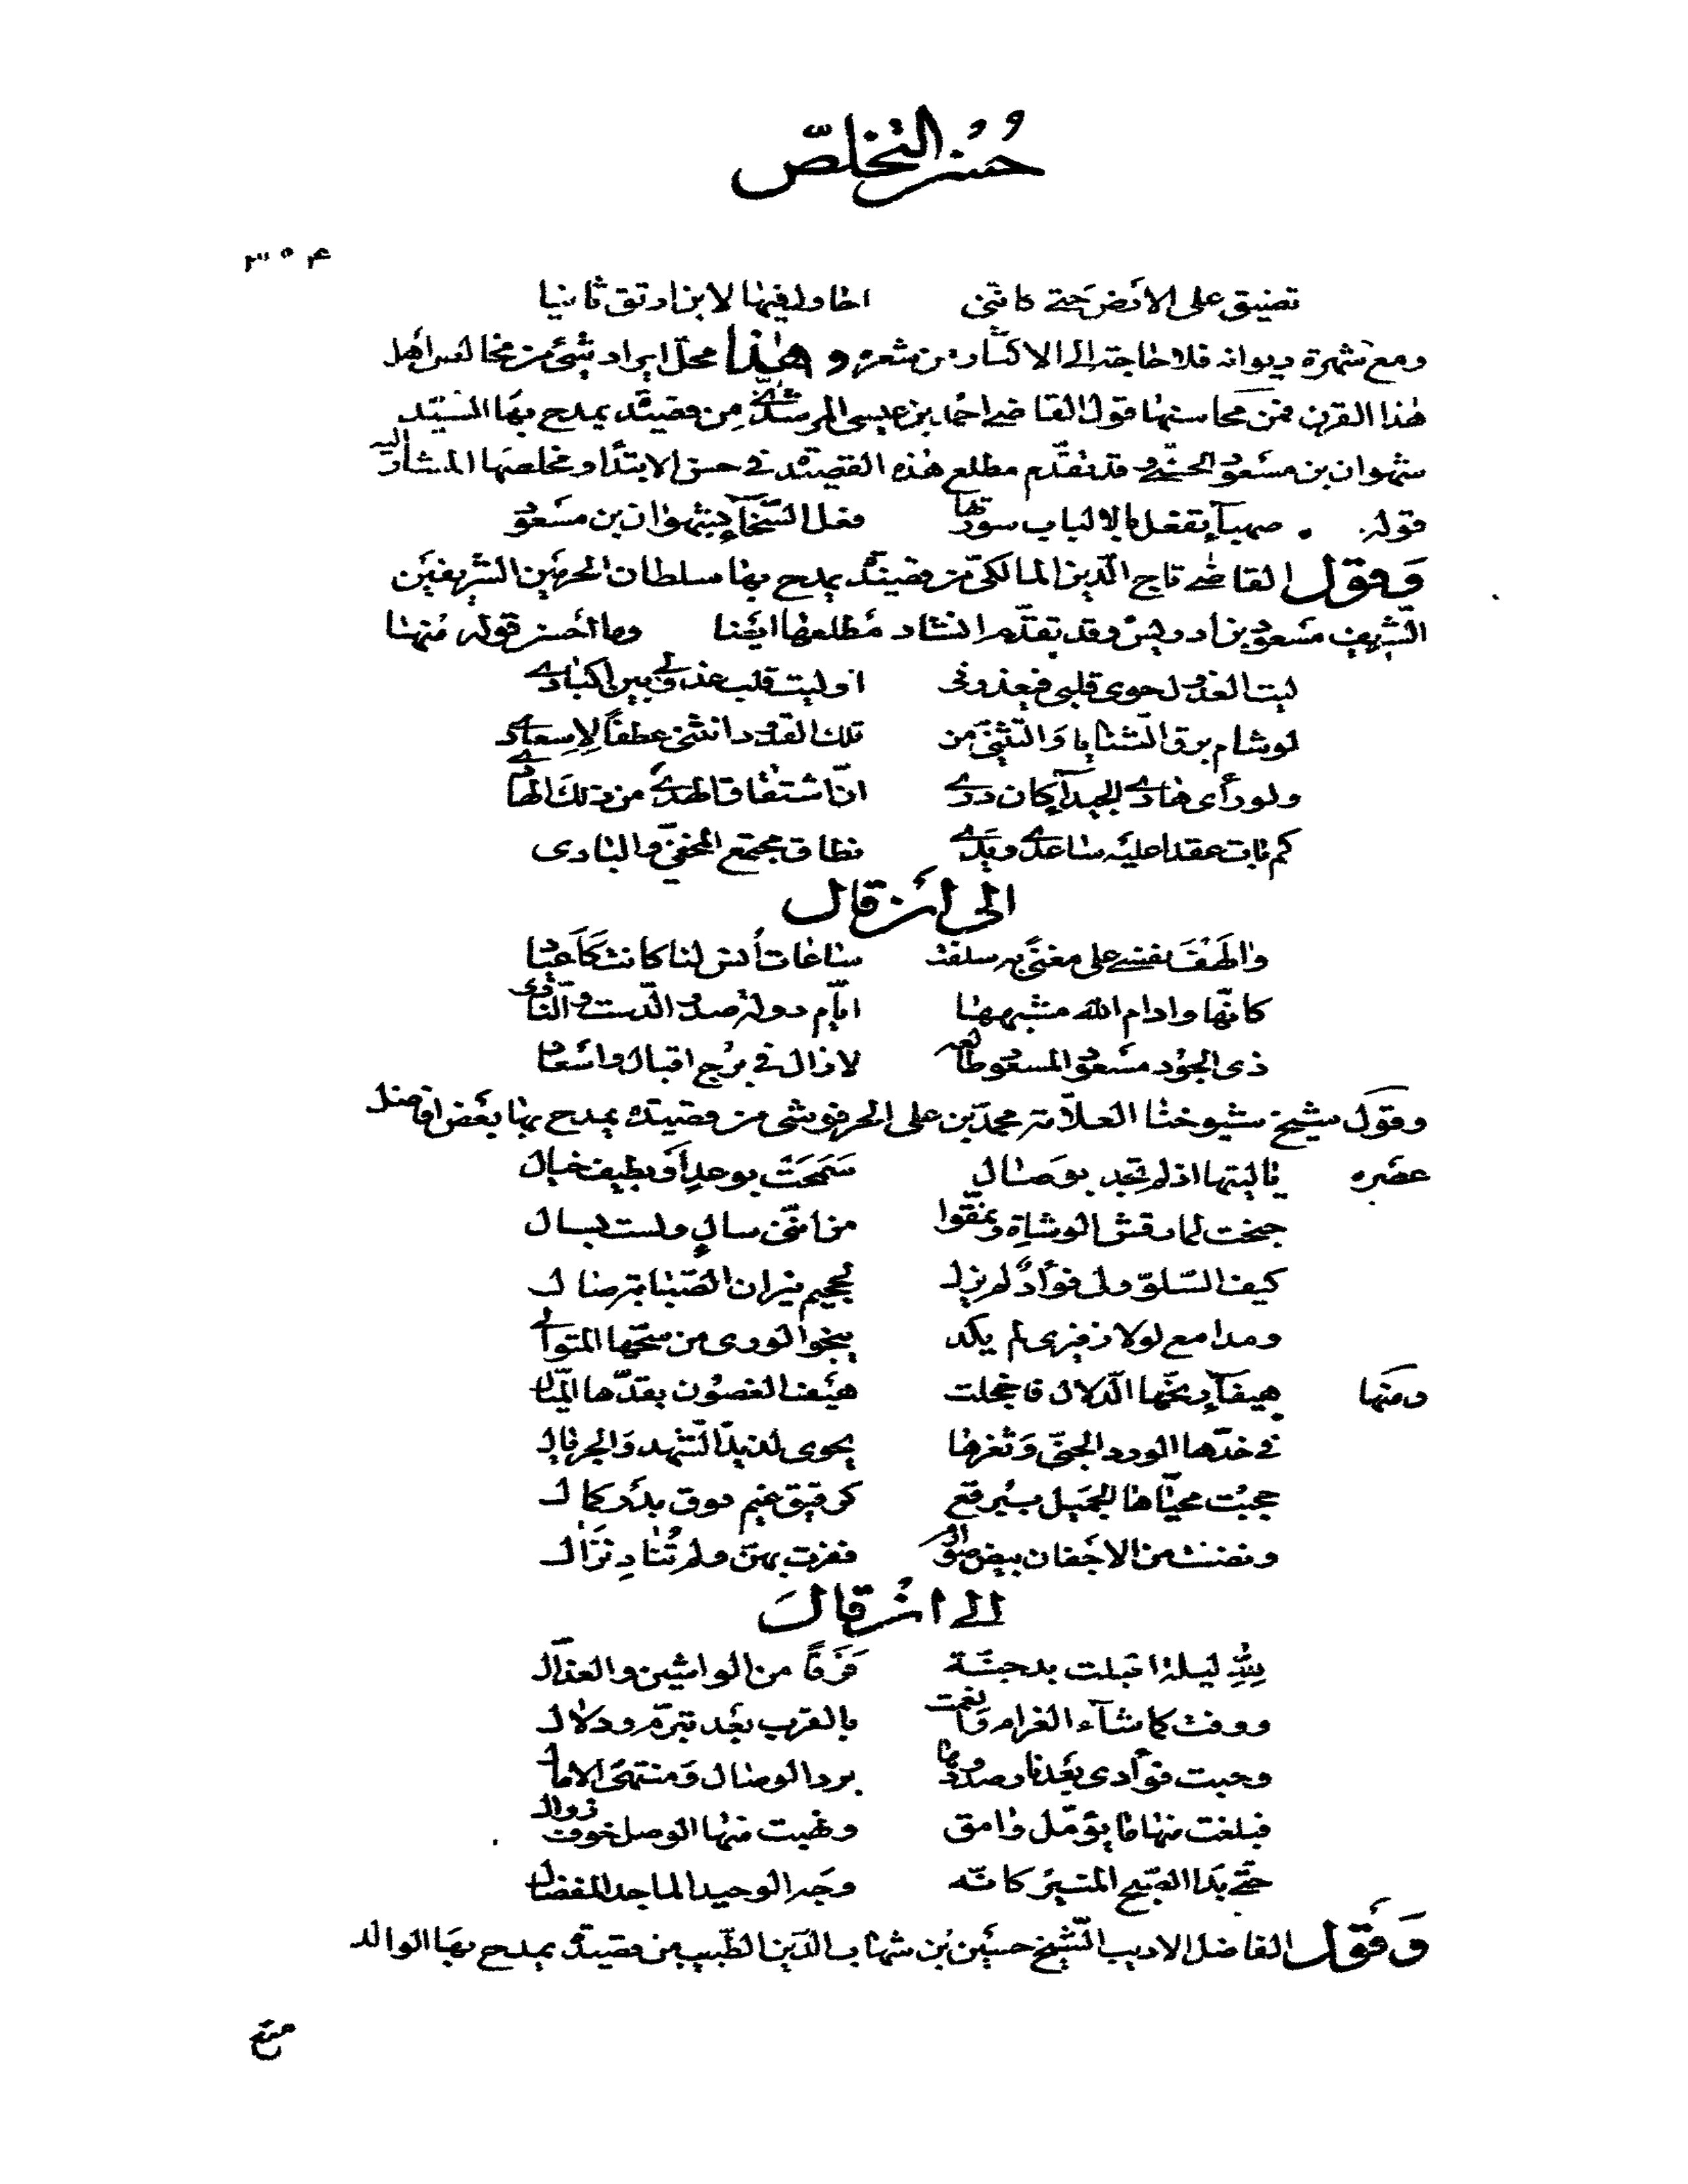 حُسْن التخلّص
۳۰۴
تضيق على الارض حتى كانّني احاول فيها لابن ارتق ثانيا
ومع شهرة ديوانه فلا حاجة الى الاكثار من شعره وهذا محلّ ايراد شيء من مخالص اهل
هذا القرن فمن محاسنها قول القاضي احمد بن عيسى المرشدي من قصيدة يمدح بها السّيّد
شهوان بن مسعود الحسني وقد تقدّم مطلع هذه القصيدة في حسن الابتدأ ومخلصها المشار اليه
قوله صهبآء تفعل بالالباب سورتها فعل السّخآء بشهوان بن مسعود
وقول القاضي تاج الدّين المالكيّ من قصيدة يمدح بها سلطان الحرمين الشريفين
الشّريف مسعود بن ادريس وقد تقدّم انشاد مطلعها ايضا وما أحسن قوله منها
ليت العذول حوى قلبي فيعذرني او ليت قلب عذولي بين اكبادي
لو شام برق الثّنايا والتثنّي من تلك القدود انثنى عطفاً لإسعادي
ولو رأى هادي الجيدآء كان درى انّ اشتقاق الهدى من ذلك الهادي
كم بات عقدا عليه ساعدي ويدي نطاق مجتمع المخفيّ والبادى
الى أن قال
والهف نفسي على مغنى به سلفت ساعات أنس لنا كانت كأعياد
كانّها وادام الله مشبهها ايّام دولة صدر الدّست والنّادى
ذى الجود مسعود المسعود طالعه لا زال في برج اقبال واسعاد
وقول شيخ شيوخنا العلاّمة محمّد بن على الحرفوشى من قصيدة يمدح بها بعض افاضل
عصره يا ليتها اذ لم تجد بوصال سمحت بوعدٍ أو بطيف خيال
جنحت لما رقش الوشاة ونمّقوا من انّنى سالٍ ولست بسال
كيف السّلوّ ولى فؤادٌ لم يزل لجحيم نيران الصّبابة صال
ومدامع لولا زفيرى لم يكد ينجو الورى من سحّها المتوالي
ومنها هيفآء رنّحها الدّلال فاخجلت هيف الغصون بقدّها الميّال
في خدّها الورد الجنيّ وثغرها يحوى لذيذ الشّهد والجريال
حجبت محيّاها الجميل ببرقع كرقيق غيم فوق بدر كمال
ونضت من الاجفان بيض صوارم فغزت بهنّ ولم تُناد نزال
الى ان قال
لله ليلة اقبلت بدجنّة فرقاً من الواشين والعذّال
ووفت كما شآء الغرام وانعمت بالقرب بعد تبرّم ودلال
وحبت فؤادى بعد نار صدودها برد الوصال ومنتهى الامال
فبلغت منها ما يؤمّل وامق ونهبت منها الوصل خوف زوال
حتّى بدا الصّبح المنير كانّه وجه الوحيد الماجد المفضال
وقول الفاضل الاديب الشّيخ حسين بن شهاب الدّين الطّبيب من قصيدة يمدح بها الوالد